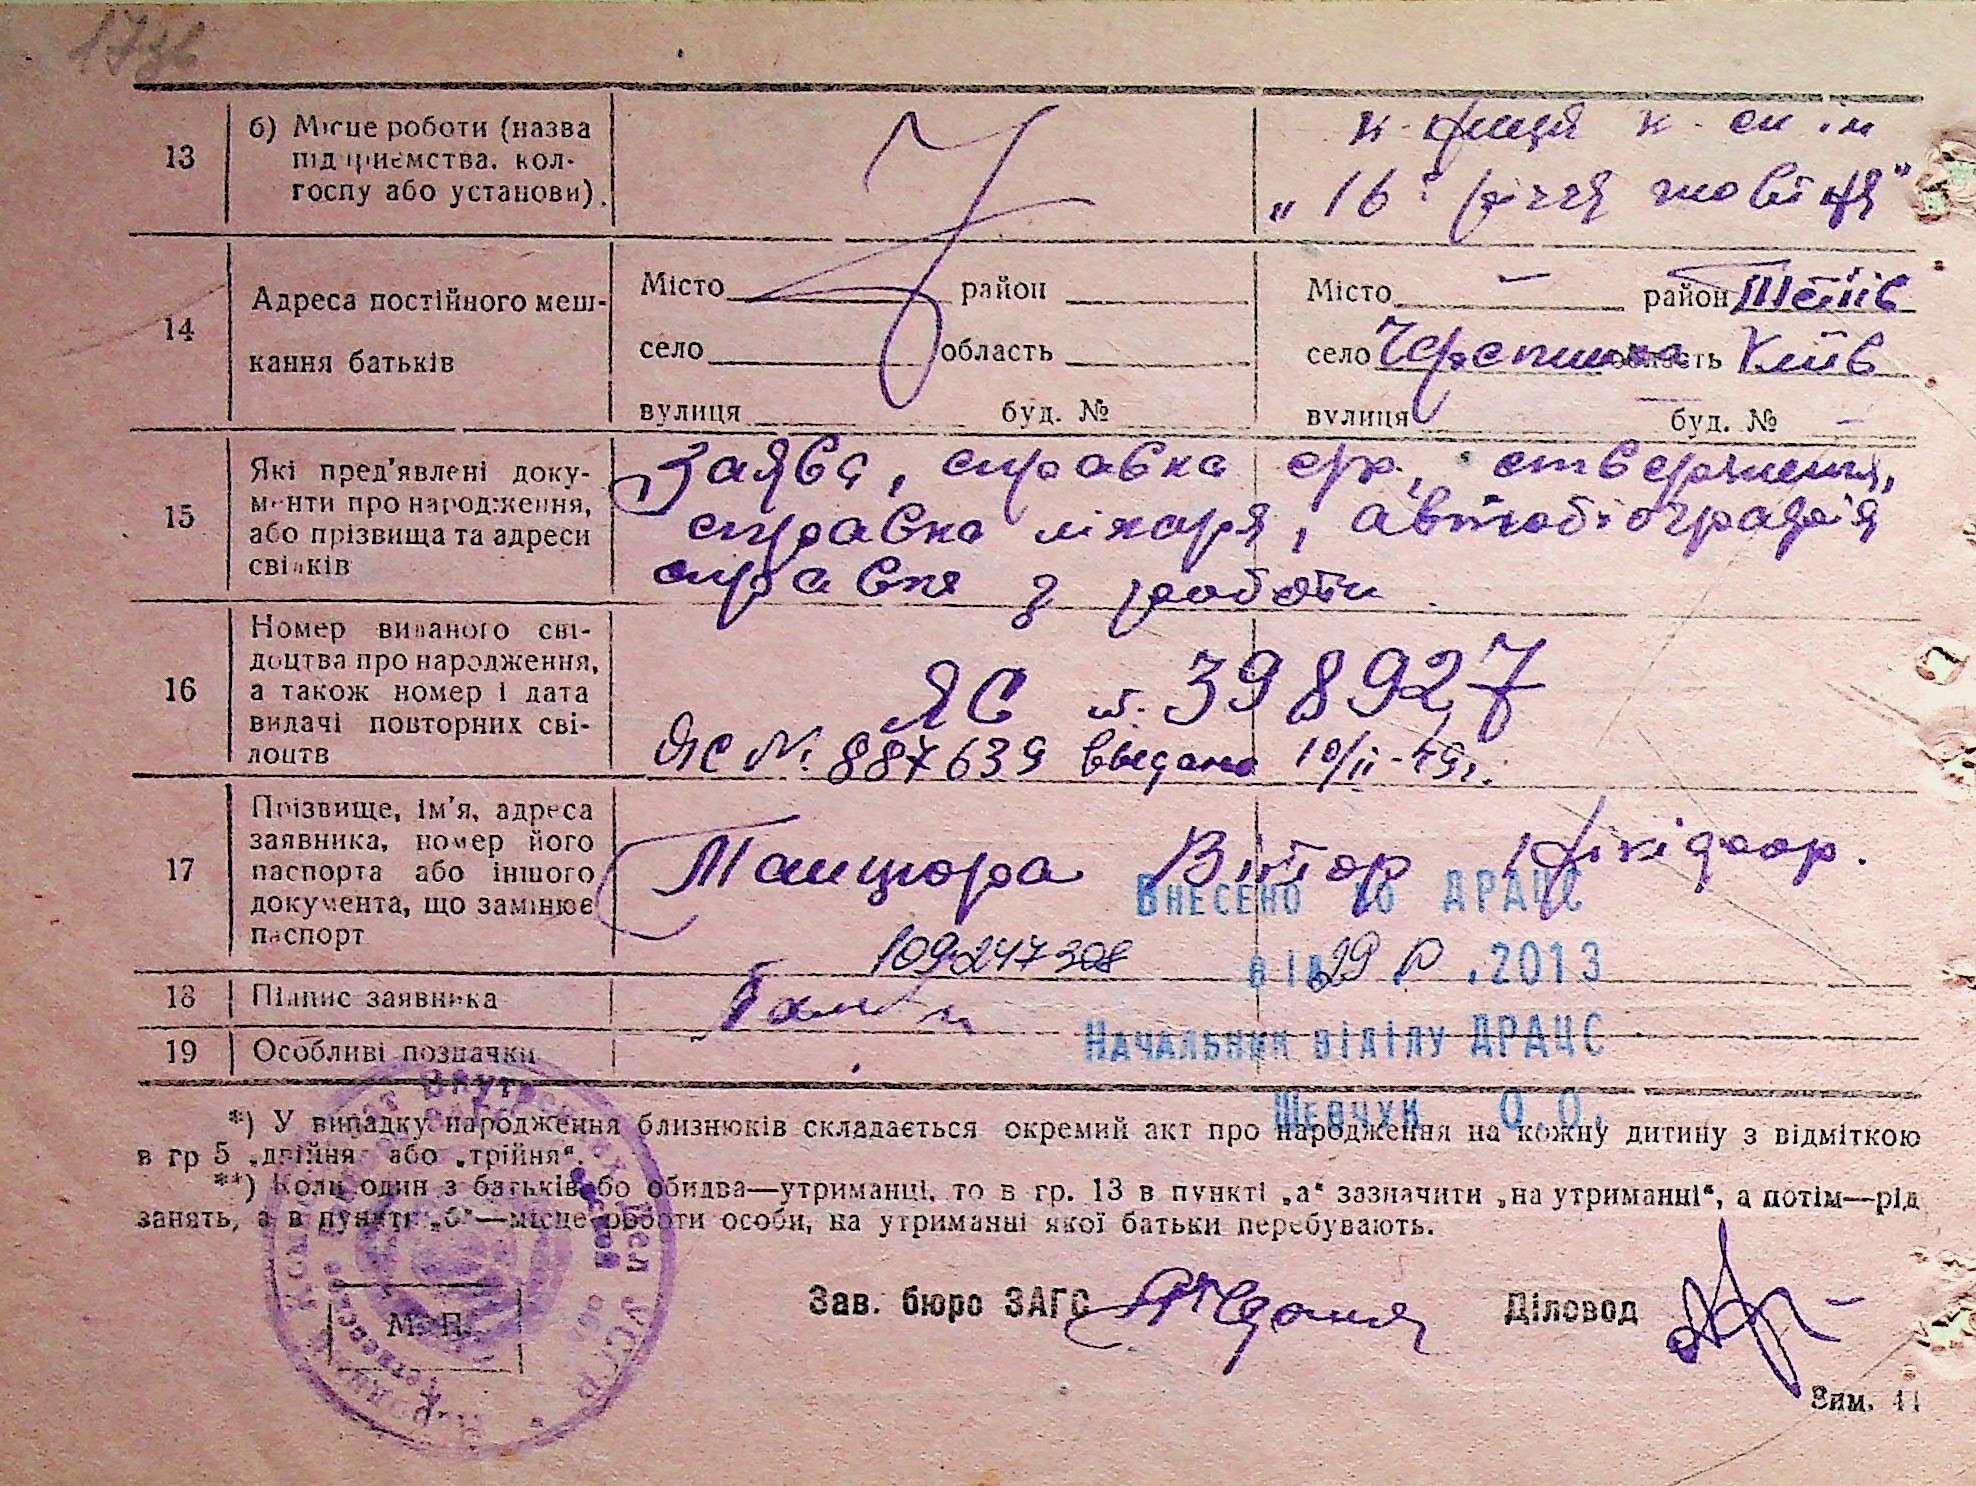 17зв
13
б) Місце роботи (назва
підприємства, кол-
госпу або установи).
к-ця к-сп ім
„16 річчя жовтня"
14
Адреса постійного меш-
кання батьків
Місто район
село область
вулиця буд. №
Місто — район Тетіїв
село Черепинка область Київ
вулиця буд. № —
15
Які пред'явлені доку-
менти про народження,
або прізвища та адреси
свідків
Заява, справка с/р, ствердження,
справка лікаря, автобіографія
справка з роботи.
16
Номер виданого сві-
доцтва про народження,
а також номер і дата
видачі повторних сві-
доцтв
ЯС № 398927
ЯС № 887639 выдано 10/II-49г.
17
Прізвище, ім'я, адреса
заявника, номер його
паспорта або іншого
документа, що замінює
паспорт
Танцюра Віктор Нікідоф.
109247308
Внесено до ДРАЦС
29 .2013
18
Підпис заявника
19
Особливі позначки
Начальник відділу ДРАЦС
Шевчук О.О.
*) У випадку народження близнюків складається окремий акт про народження на кожну дитину з відміткою
в гр 5 „двійня" або „трійня".
**) Коли один з батьків або обидва—утриманці, то в гр. 13 в пункті „а" зазначити „на утриманні", а потім—рід
занять, а в пункті „б"—місце роботи особи, на утриманні якої батьки перебувають.
М. П.
Зав. бюро ЗАГС
Діловод
Зим. 44